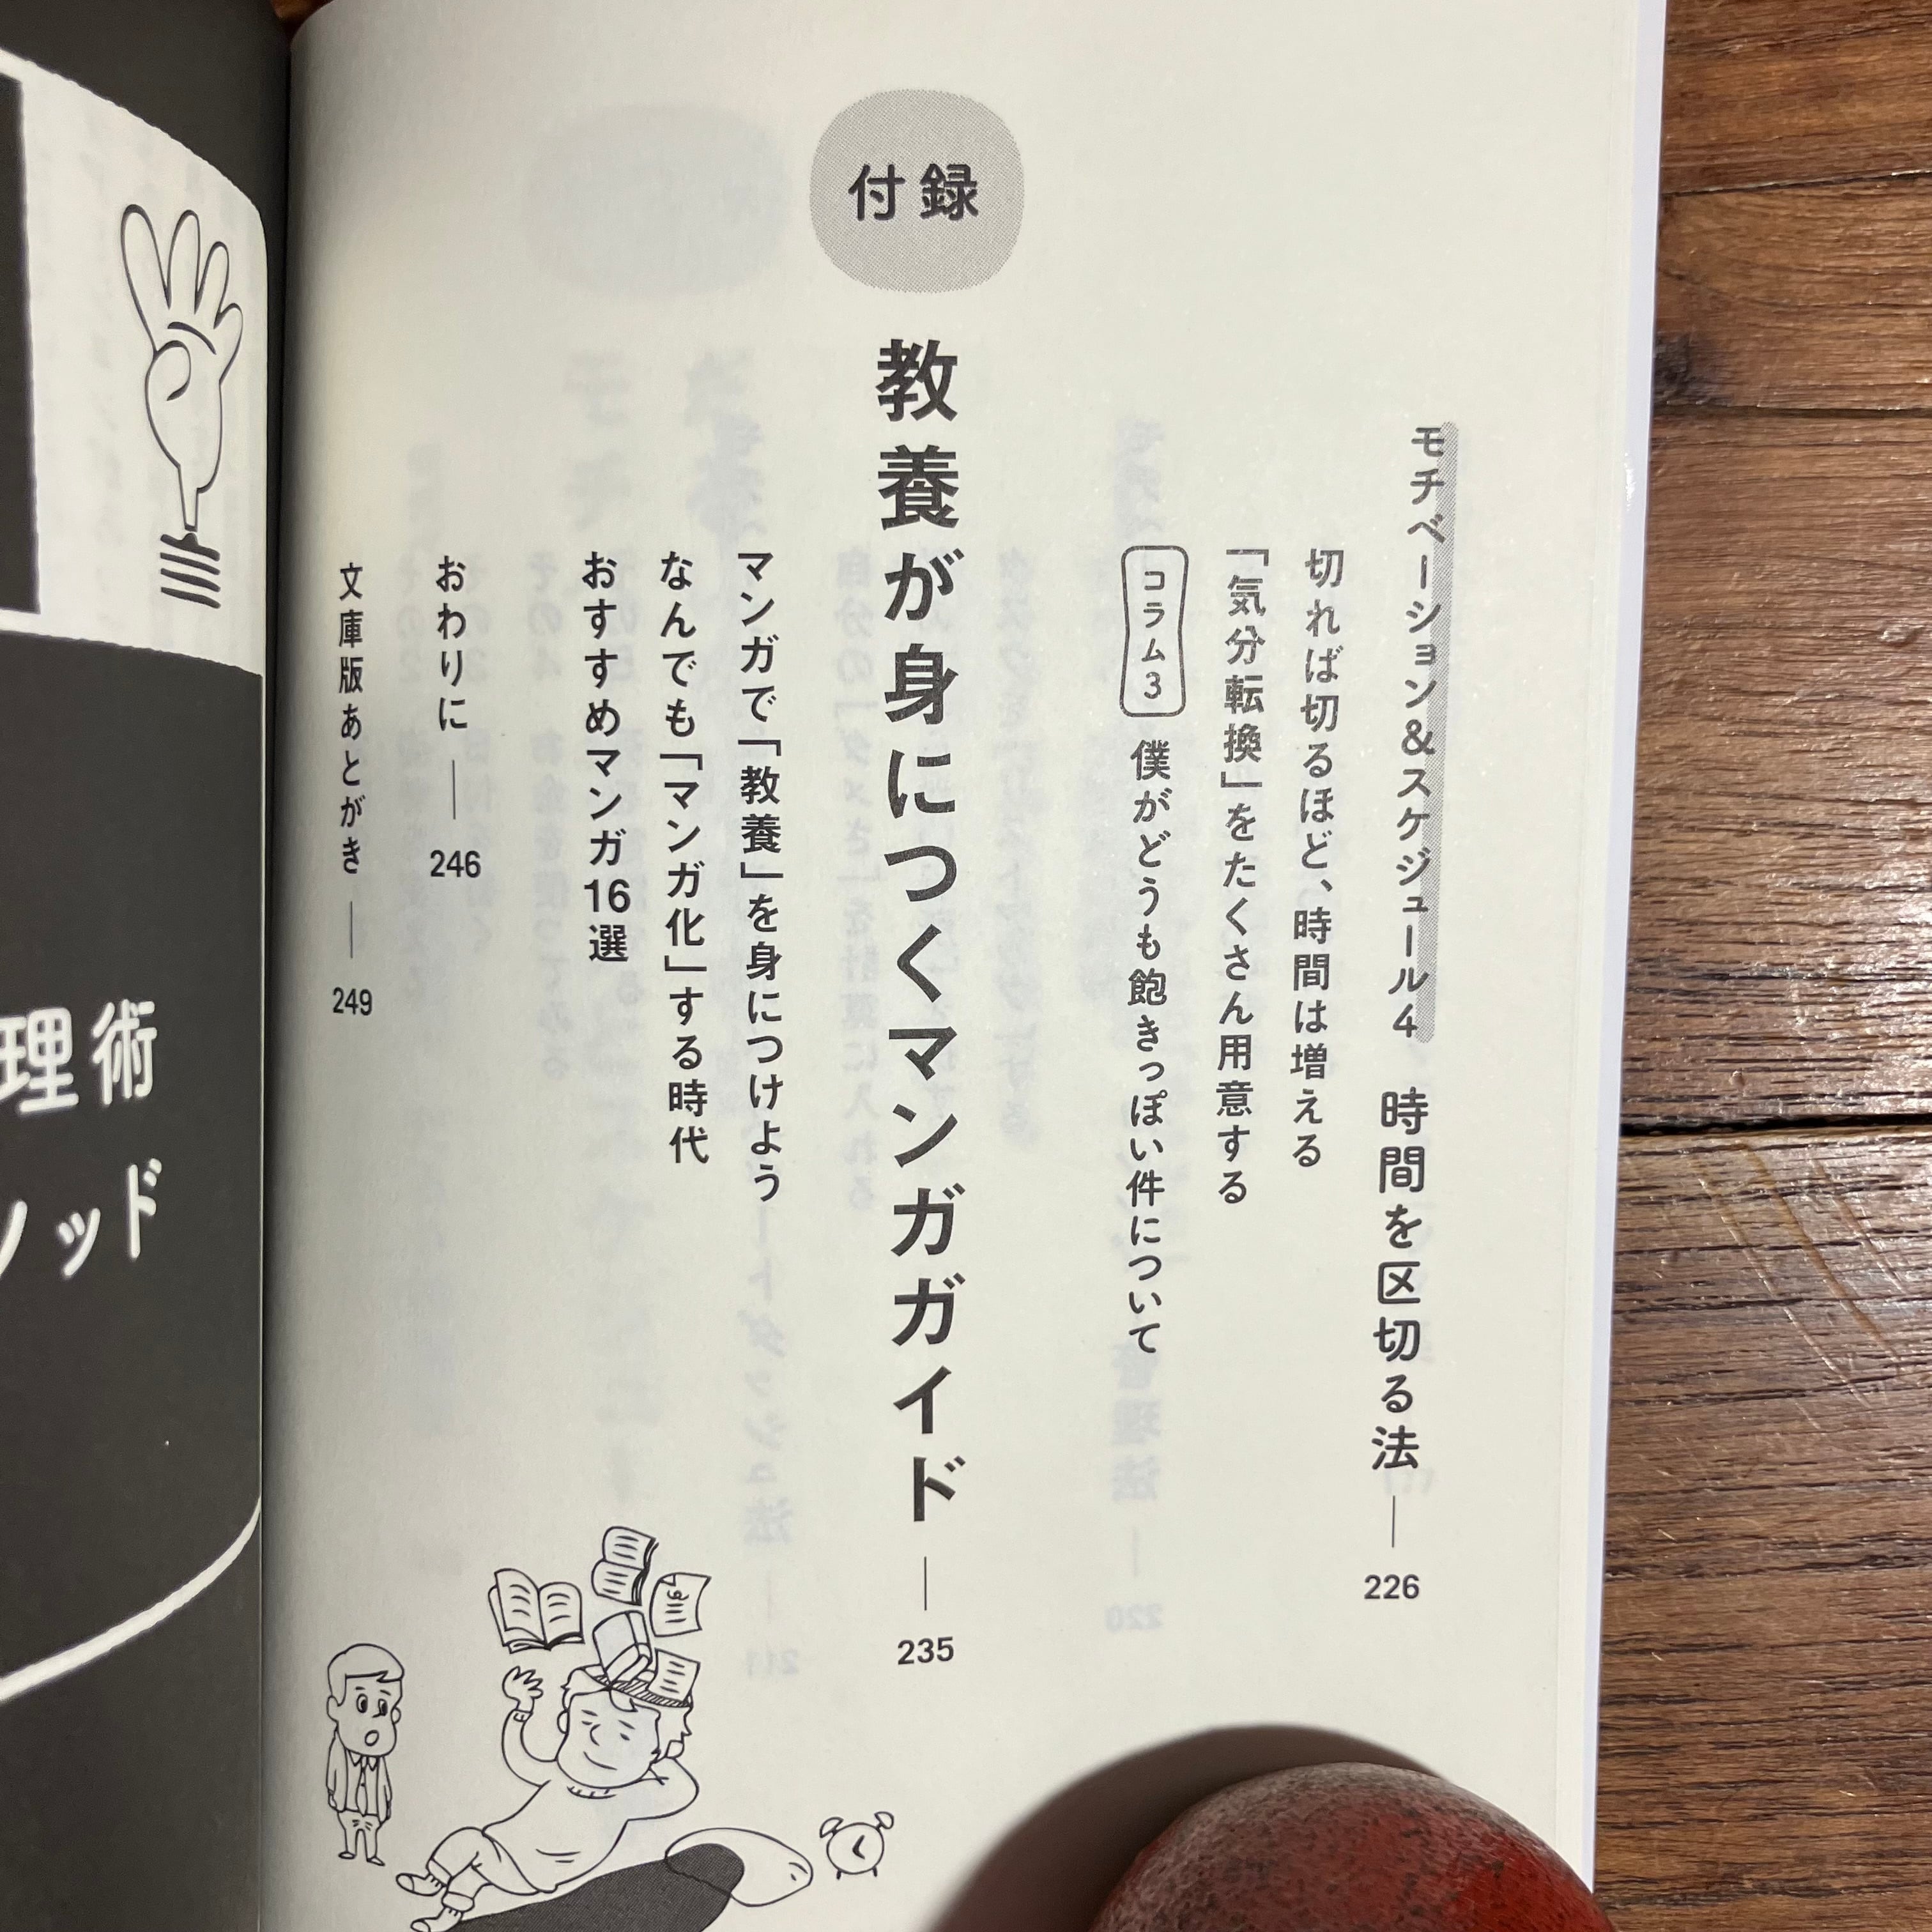 モチベーション&スケジュール4 時間を区切る法 — 226
切れば切るほど、時間は増える
「気分転換」をたくさん用意する
コラム3 僕がどうも飽きっぽい件について
付録
教養が身につくマンガガイド — 235
マンガで「教養」を身につけよう
なんでも「マンガ化」する時代
おすすめマンガ16選
おわりに — 246
文庫版あとがき — 249
理術
ソッド